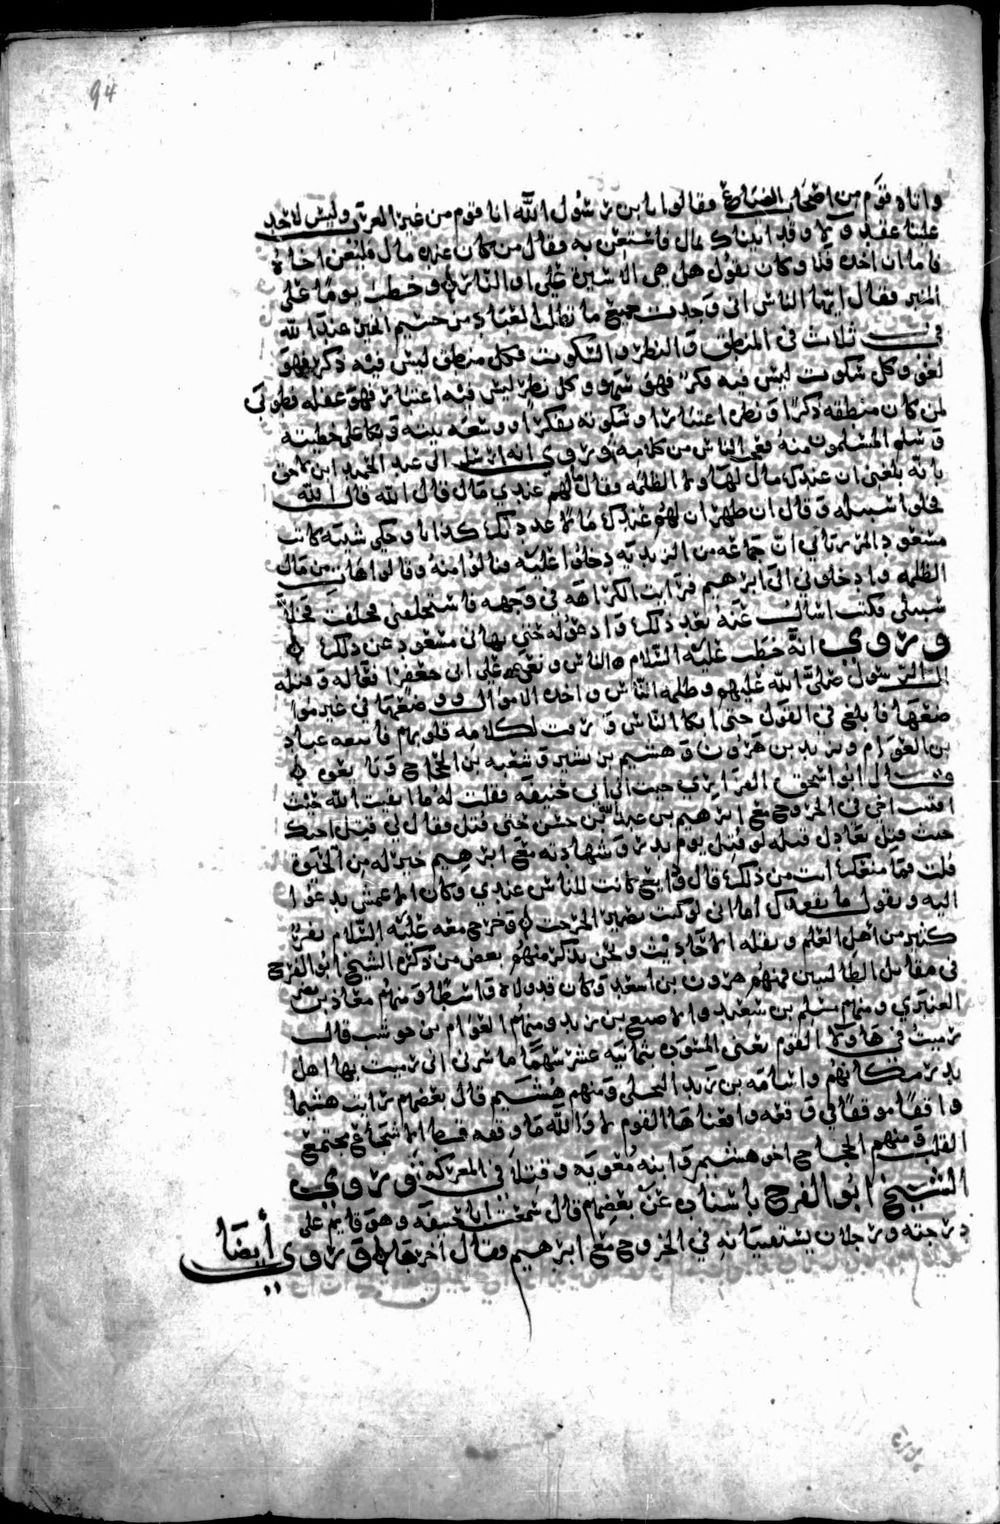 94
واتاه قوم من اصحاب الضياع فقالوا يا بن رسول الله انا قوم من غير العرب وليس لاحد
علينا عقد ولا وقد اتيناك بمال فاستعن به فقال من كان عنده مال فليعن اخاه
فاما ان اخذه فلا وكان يقول هل هي الا سيرة علي او النار وخطب يوما على
المنبر فقال ايها الناس اني وجدت جميع ما تطلب العباد من جسيم الخير عند الله
في ثلاث في المنطق والنظر والسكوت فكل منطق ليس فيه ذكر فهو
لغو وكل سكوت ليس فيه فكر فهو سهو وكل نظر ليس فيه اعتبار فهو غفله فطوبى
لمن كان منطقه ذكرا ونظره اعتبارا وسكوته تفكرا ووسعه بيته وبكا على خطيته
وسلم المسلمون منه فعجب الناس من كلامه وروي انه ارسل الى عبد الحميد ابن لاحق
بانه بلغني ان عندك مال لهاولا الظلمه فقال ما لهم عندي مال قال الله قال الله
فخلوا سبيله وقال ان ظهر ان لهم عندك مالا عددتك كذابا وحكى
مسعود المرزباني ان جماعه من الزيديه دخلوا عليه فنالوا منه وقالوا هات من مال
الظلمه وادخلوني الى ابرهيم فرايت الكراهه في وجهه فاستحلفني فحلفت فخلا
سبيلي فكنت اسال عنه بعد ذلك وادعو له حتى نهاني مسعود عن ذلك
وروي انه خطب عليه السلام الناس ونعى على ابي جعفر افعاله وقتله
ال الرسول صلى الله عليهم وظلمه الناس واخذه الاموال ووضعها في غير مواضعها
فابلغ في القول حتى ابكا الناس ورقت لكلامه قلوبهم فاتبعه عباد
بن العوام ويزيد بن هرون وهشيم بن بشير وشعبه بن الحجاج
وقال ابو اسحق الفزاري جيت الى ابي حنيفه فقلت له ما اتقيت الله حيث
افتيت اخي في الخروج مع ابرهيم بن عبدالله بن حسن حتى قتل فقال لي قتل اخيك
حيث قتل يعادل قتله لو قتل يوم بدر وشهادته مع ابرهيم خير له من الحيوة
قلت فما منعك انت من ذلك قال ودايع كانت للناس عندي وكان الاعمش يدعوا
اليه ويقول ما يقعدكم اما اني لو كنت بصير الخرجت وخرج معه عليه السلام نفر
كثير من اهل العلم ونقله الاحاديث ونحن نذكر منهم بعض من ذكره الشيخ ابو الفرج
في مقاتل الطالبيين فمنهم هرون بن اسعد وكان قد ولاه واسطا ومنهم معاذ بن نصر
العنبري ومنهم مسلم بن سعيد والاصبغ بن زيد ومنهم العوام بن حوشب قال
رميت في هاولا القوم يعني المسوده ثمانيه عشر سهما ما سرني اني رميت بها اهل
بدر مكانهم واسامه بن زيد ومنهم هشيم قال بعضهم رايت هشيما
واقفا موقفا في وقعه واقعنا ها القوم لا والله ما وقفه قط الا شجاع مجتمع
القلب ومنهم الحجاج اخو هشيم وابنه معويه وقتلا في المعركه وروي
الشيخ ابو الفرج باسناده عن بعضهم قال سمعت ابا حنيفه وهو قايم على
درجته ورجلان يستفتيانه في الخروج مع ابرهيم وقال اخرجا وروي أيضا